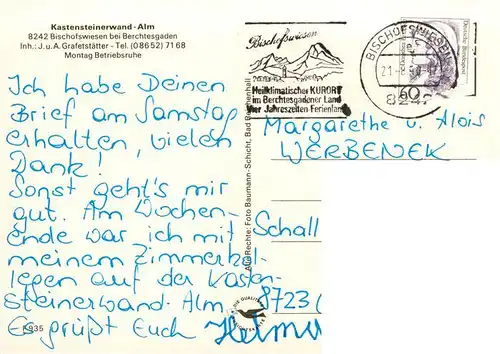 Kastensteinerwand-Alm
8242 Bischofswiesen bei Berchtesgaden
Inh.: J.u.A.Grafetstätter - Tel. (08652) 7168
Montag Betriebsruhe
Ich habe Deinen
Brief am Samstag
erhalten, vielen
Dank!
Sonst geht's mir
gut. Am Wochen-
ende war ich mit
meinem Zimmerkol-
legen auf der Kasten-
steinerwand-Alm.
Es grüßt Euch Helmut
K 935
Alle Rechte: Foto Baumann-Schicht, Bad Reichenhall
Bischofswiesen
Heilklimatischer KURORT
im Berchtesgadener Land
Vier Jahreszeiten Ferienland
BISCHOFSWIESEN
8242
60
Deutsche Bundespost
Margarethe u. Alois
WERBENEK
Schall
8723